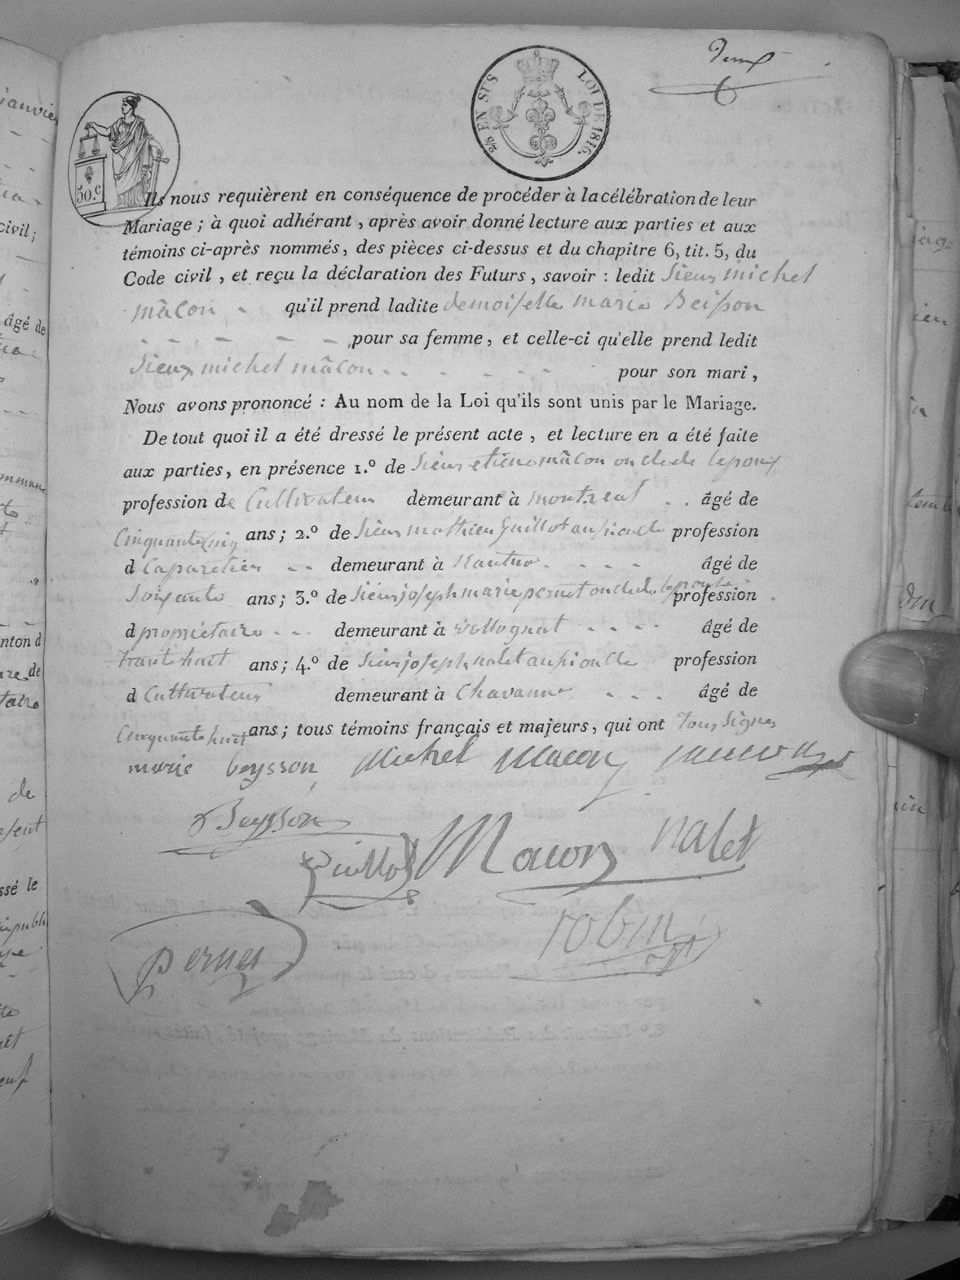 Deux
6
2/5 EN SUS LOI DE 1816.
50.c
Ils nous requièrent en conséquence de procéder à la célébration de leur
Mariage ; à quoi adhérant, après avoir donné lecture aux parties et aux
témoins ci-après nommés, des pièces ci-dessus et du chapitre 6, tit. 5, du
Code civil, et reçu la déclaration des Futurs, savoir : ledit Sieur michel
mâcon qu'il prend ladite demoiselle marie Beisson
pour sa femme, et celle-ci qu'elle prend ledit
Sieur michel mâcon pour son mari,
Nous avons prononcé : Au nom de la Loi qu'ils sont unis par le Mariage.
De tout quoi il a été dressé le présent acte, et lecture en a été faite
aux parties, en présence 1.º de Sieur etiene mâcon oncle de lepoux
profession de Cultivateur demeurant à montreal âgé de
Cinquante six ans ; 2.º de Sieur mathieu guillot aussi oncle profession
d demeurant à Nantua âgé de
Soixante ans ; 3.º de Sieur joseph marie pernet oncle de lepouse profession
d propriétaire demeurant à Vollognat âgé de
trante huit ans ; 4.º de Sieur joseph nalet aussi oncle profession
d Cultivateur demeurant à Chavanne âgé de
Cinquante huit ans ; tous témoins français et majeurs, qui ont tous Signés
marie beysson Michel Macon
Beysson
Guillot Macon nalet
robin
pernet